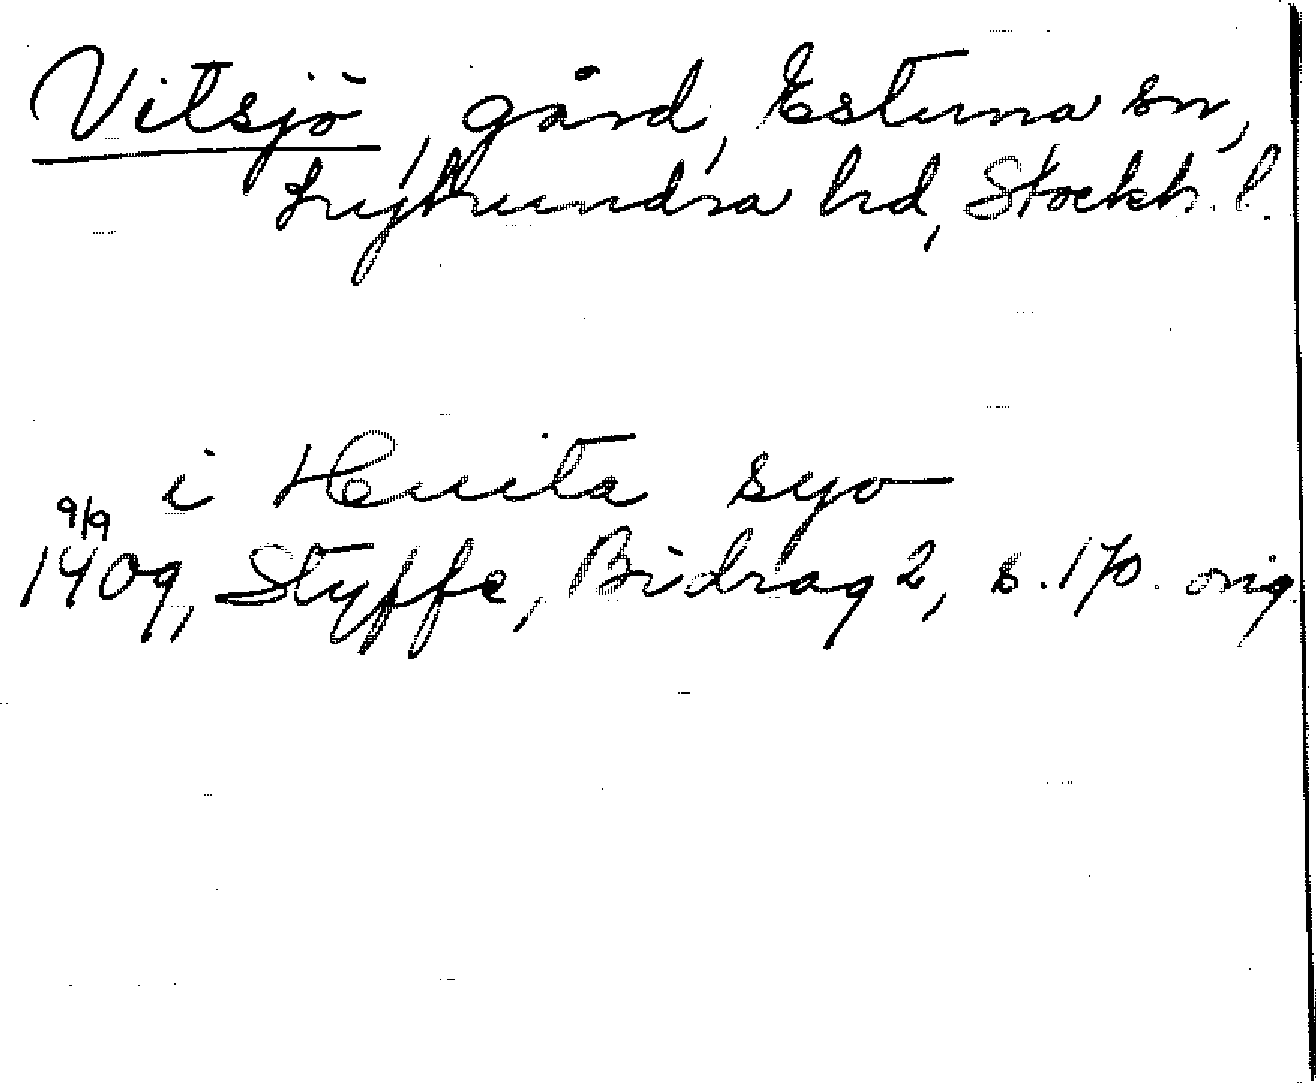 Vitsjö, gård, Estuna sn,
Lyhundra hd, Stockh. l.
i Hwita syo
9/9
1409, Styffe, Bidrag 2, s. 170. orig.